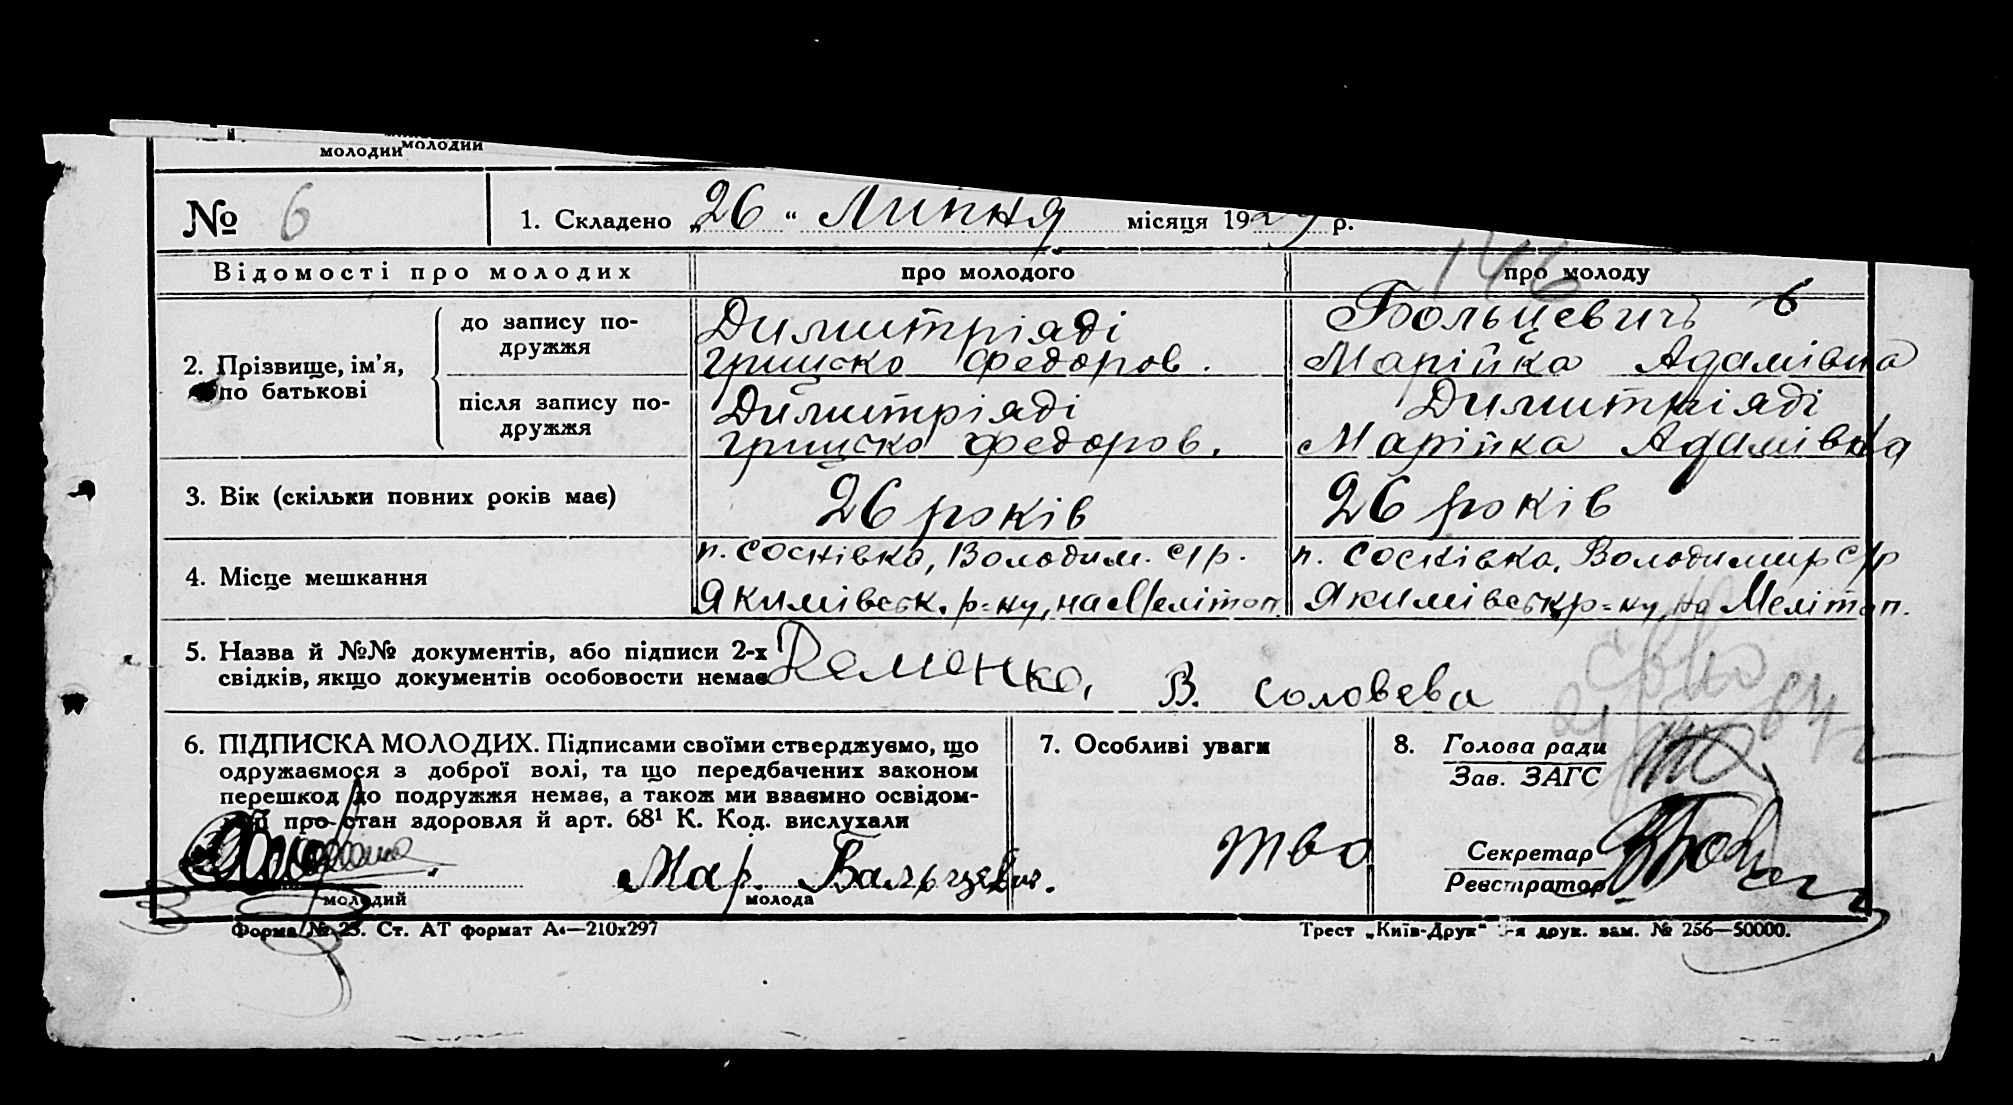 молодий молодий
№ 6
1. Складено „26“ Липня місяця 1929 р.
146
Відомості про молодих
про молодого
про молоду
2. Прізвище, ім'я, по батькові
до запису по-
дружжя
Димитріяді
грицско федоров.
Больцевичъ 6
Марійка Адамівна
після запису по-
дружжя
Димитріяді
грицско федоров.
Димитріяді
Марійка Адамівна
3. Вік (скільки повних років має)
26 років
26 років
4. Місце мешкання
п. Соснівка, Володим. с/р.
Якимівськ. р-ну, на Меліտоп.
п. Соснівка, Володимир с/р
Якимівськ р-ну, на Мелітоп.
5. Назва й №№ документів, або підписи 2-х
свідків, якщо документів особовости немає
Деменко, В. Соловьева
6. ПІДПИСКА МОЛОДИХ. Підписами своїми стверджуємо, що
одружаємося з доброї волі, та що передбачених законом
перешкод до подружжя немає, а також ми взаємно освідом-
про стан здоровля й арт. 68¹ К. Код. вислухали
Мар. Бальцевич.
молодий
молода
7. Особливі уваги
тво
8. Голова ради
Зав. ЗАГС
Секретар
Реєстратор
Форма № 23. Ст. АТ формат А₄—210х297
Трест „Київ-Друк“ -я друк. зам. № 256—50000.